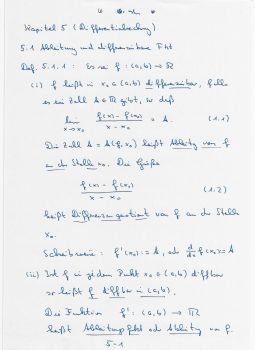 Kapitel 5 (Differentialrechnung)
5.1 Ableitung und differenzierbare Fkt
Def. 5.1.1: Es sei f: (a,b) → ℝ
(i) f heißt in x₀ ∈ (a,b) differenzierbar, falls
es ein Zahl A ∈ ℝ gibt, so daß
lim x→x₀ (f(x) - f(x₀))/(x - x₀) = A. (1.1)
Die Zahl A = A(f, x₀) heißt Ableitung von f
an der Stelle x₀. Die Größe
(f(x) - f(x₀))/(x - x₀) (1.2)
heißt Differenzenquotient von f an der Stelle
x₀.
Schreibweise: f'(x₀) := A, oder d/dx f(x₀) = A
(ii) Ist f in jedem Punkt x₀ ∈ (a,b) diffbar
so heißt f diffbar in (a,b).
Die Funktion f': (a,b) → ℝ
heißt Ableitungsfkt oder Ableitung von f.
5-1